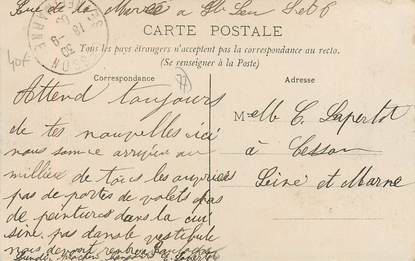 Rue de la Marée a St Leu S et O
CARTE POSTALE
Tous les pays étrangers n'acceptent pas la correspondance au recto.
(Se renseigner à la Poste)
Correspondance
Adresse
Attend toujours
de tes nouvelles ici
nous somme arrivée au
millieu de tous les ouvriers
pas de portes de volets pas
de peintures dans la cui
sine pas dans le vestibule
nous devont rentrer
Lundi
Lapertot
Melle C. Lapertot
à Cesson
Seine et Marne
40f